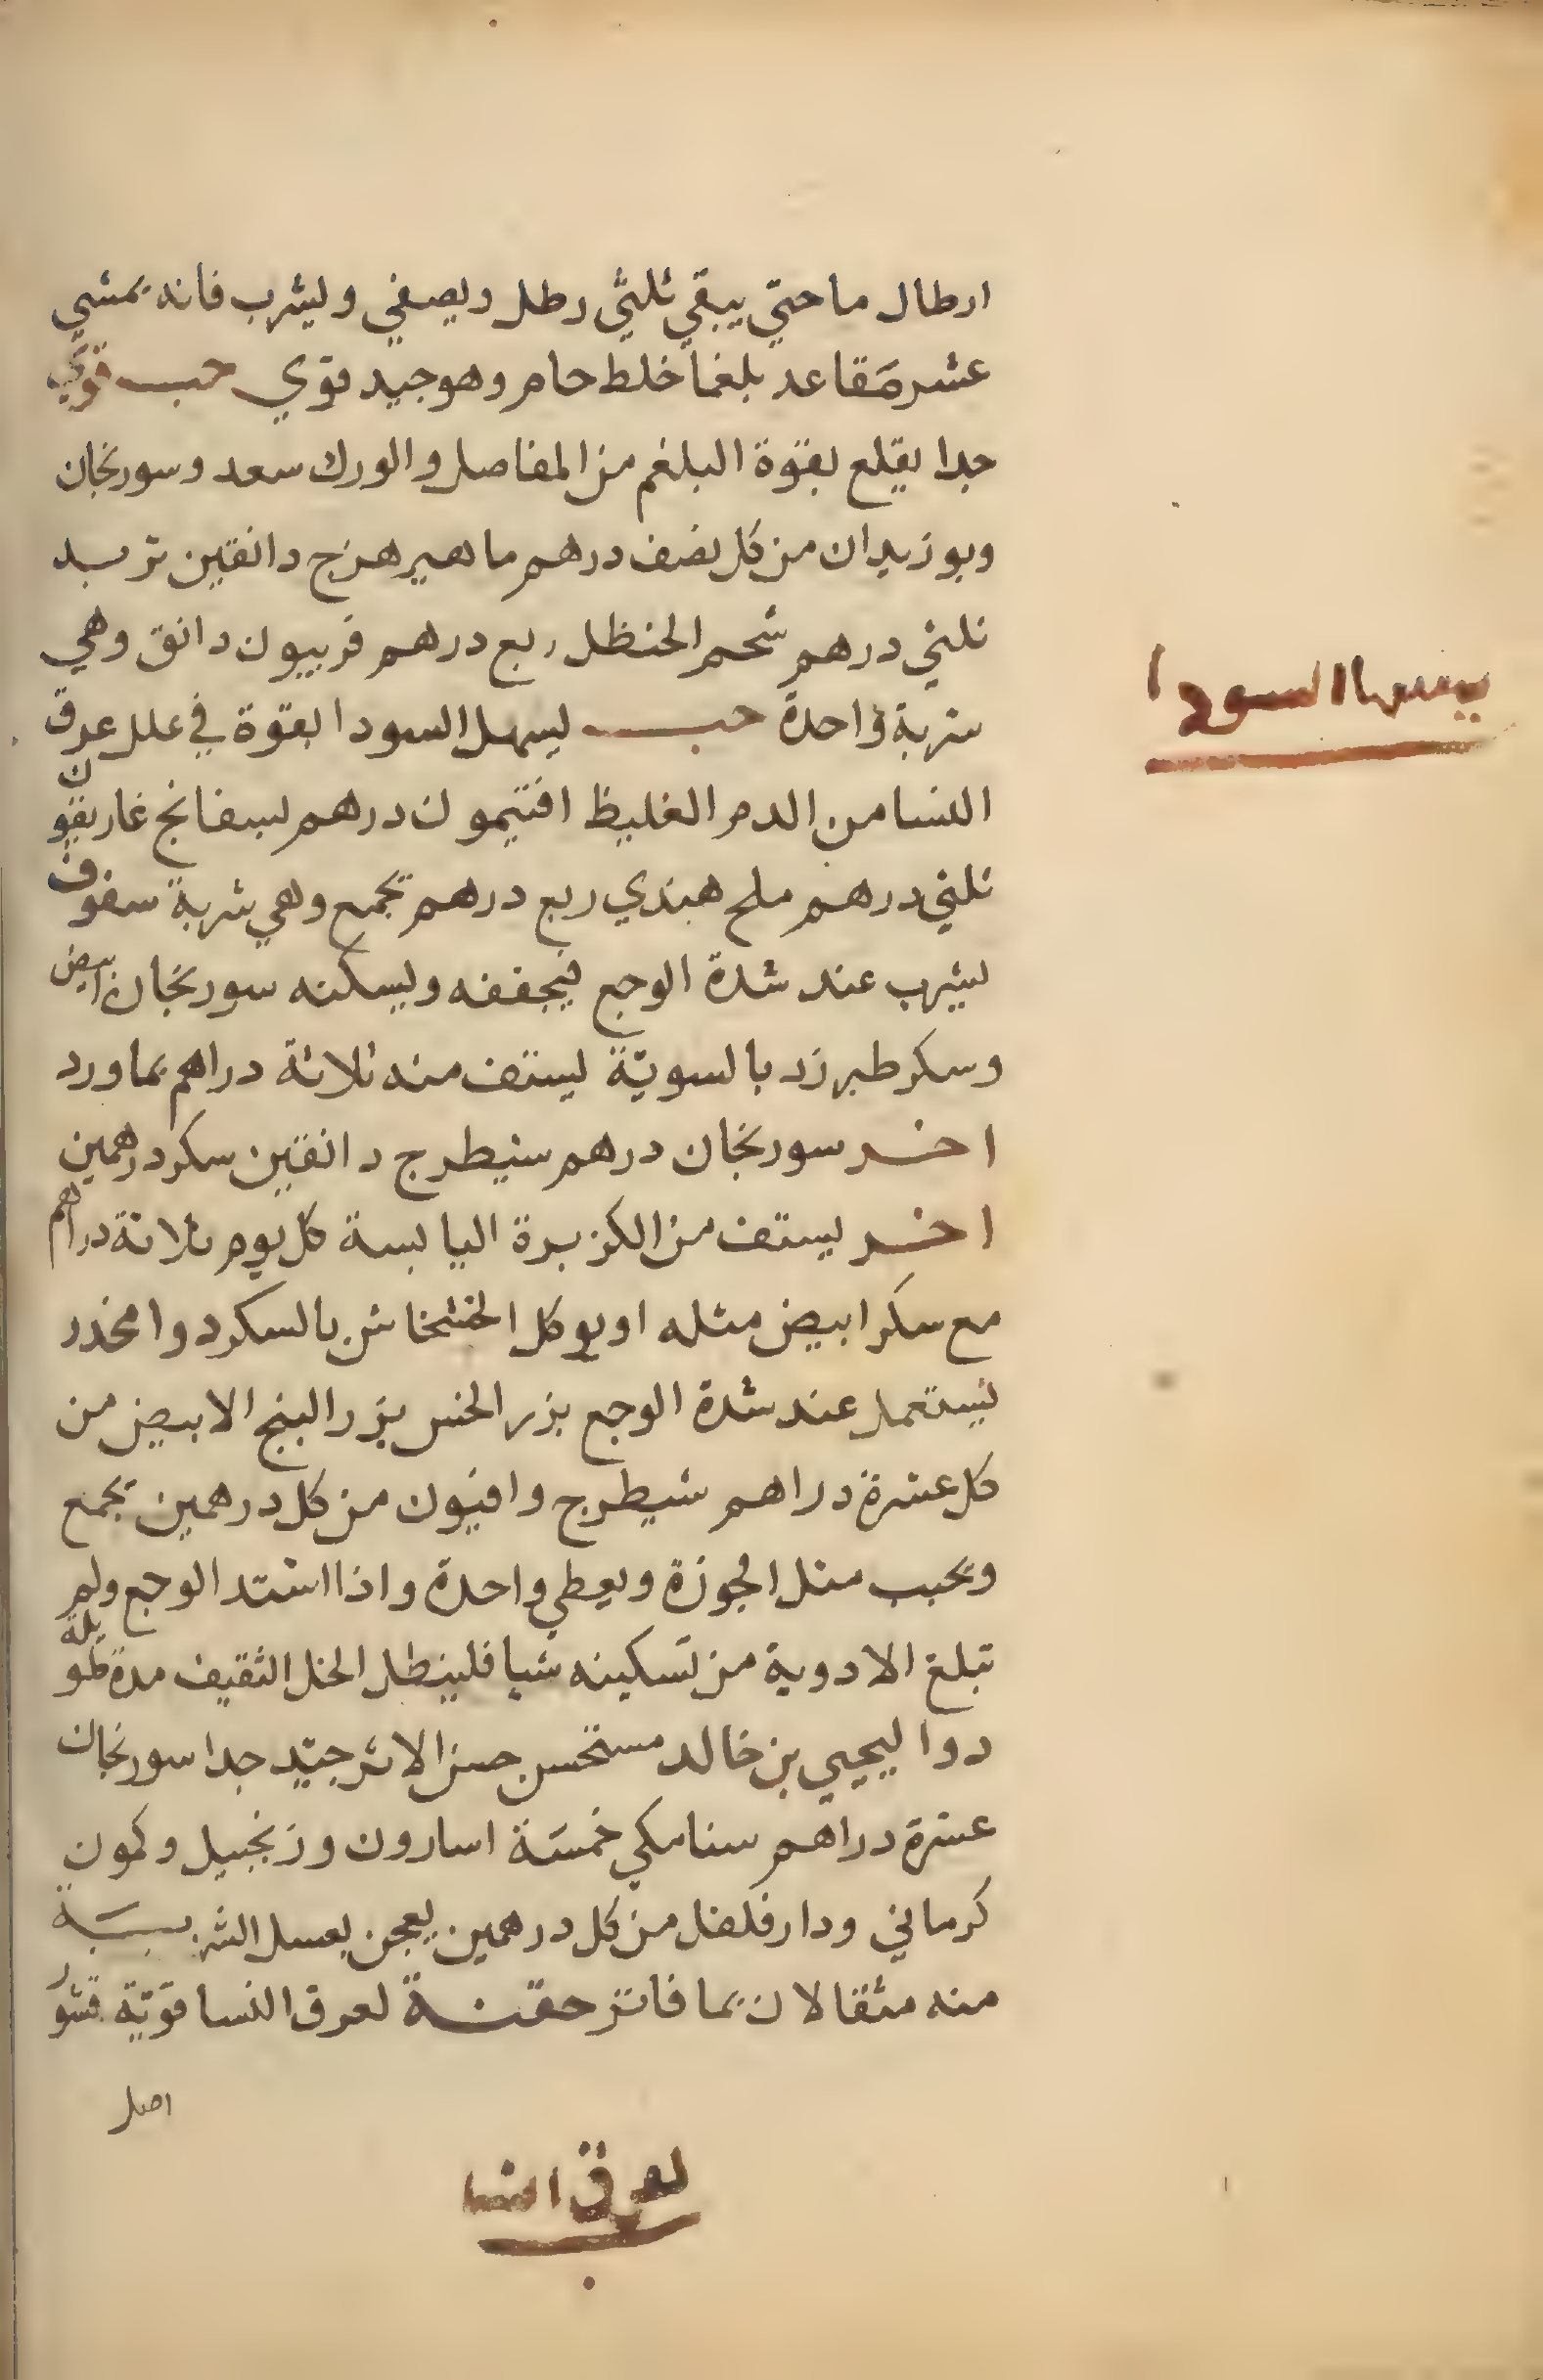 ارطال ما حتي يبقي ثلثي رطل ويصفي وليشرب فانه يمشي
عشر مَقاعد بلغما خلط حام وهو جيد قوي حب قوي
جدا يقلع بقوة البلغم من المفاصل والورك سعد وسورنجان
وبوزيدان من كل نصف درهم ماهيرهرج دانقين تربد
ثلثي درهم شحم الحنظل ربع درهم فربيون دانق وهي
شربة واحدة حب يسهل السودا بقوة في علل عرق
النسا من الدم الغليظ افتيمون درهم بسفانج غاريقون
ثلثي درهم ملح هندي ربع درهم يجمع وهي شربة سفوف
يشرب عند شدة الوجع فيجففه ويسكنه سورنجان ابيض
وسكر طبرزد بالسوية يستف منه ثلاثة دراهم بماورد
اخر سورنجان درهم شيطرج دانقين سكر درهمين
اخر يستف من الكزبرة اليابسة كل يوم ثلاثة دراهم
مع سكر ابيض مثله او يوكل الخشخاش بالسكر دوا مخدر
يستعمل عند شدة الوجع بزر الخس بزر البنج الابيض من
كل عشرة دراهم شيطرج وافيون من كل درهمين يجمع
ويحبب مثل الجوزة ويعطي واحدة واذا اشتد الوجع ولم
تبلغ الادوية من تسكينه شيا فلينطل الخل الثقيف مدة طويلة
دوا ليحيي بن خالد مستحسن حسن الاثر جيد جدا سورنجان
عشرة دراهم سنا مكي خمسَة اسارون وزنجبيل وكمون
كرماني ودار فلفل من كل درهمين يعجن بعسل الشربة
منه مثقالان بما فاتر حقنة لعرق النسا قوية قشور
اصل
يسهل السودا
لعرق النسا